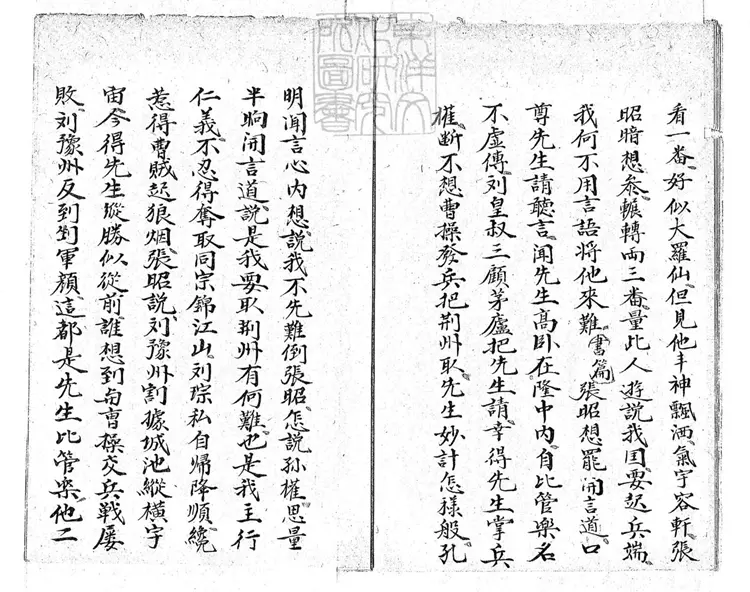 看一番好似大羅仙但見他丰神飄洒氣宇容軒張
昭暗想叅輾轉両三番量此人遊說我囯要起兵端
我何不用言語將他來難書篇張昭想罷開言道口
尊先生請聽言聞先生髙卧在隆中内自比管樂名
不虛傳刘皇叔三顧茅廬把先生請幸得先生掌兵
權断不想曹操發兵把荆州取先生妙計怎樣般孔
明聞言心内想說我不先難倒張昭怎說孫權思量
半晌開言道說是我要取荆州有何難也是我主行
仁義不忍得奪取同宗錦江山刘琮私自帰降順纔
惹得曹賊起狼烟張昭說刘豫州割據城池縱橫宇
宙今得先生縱勝似從前誰想到曹操交兵戰屡
敗刘豫州反到軍顔這都是先生比管楽他二
東洋文化研究所圖書